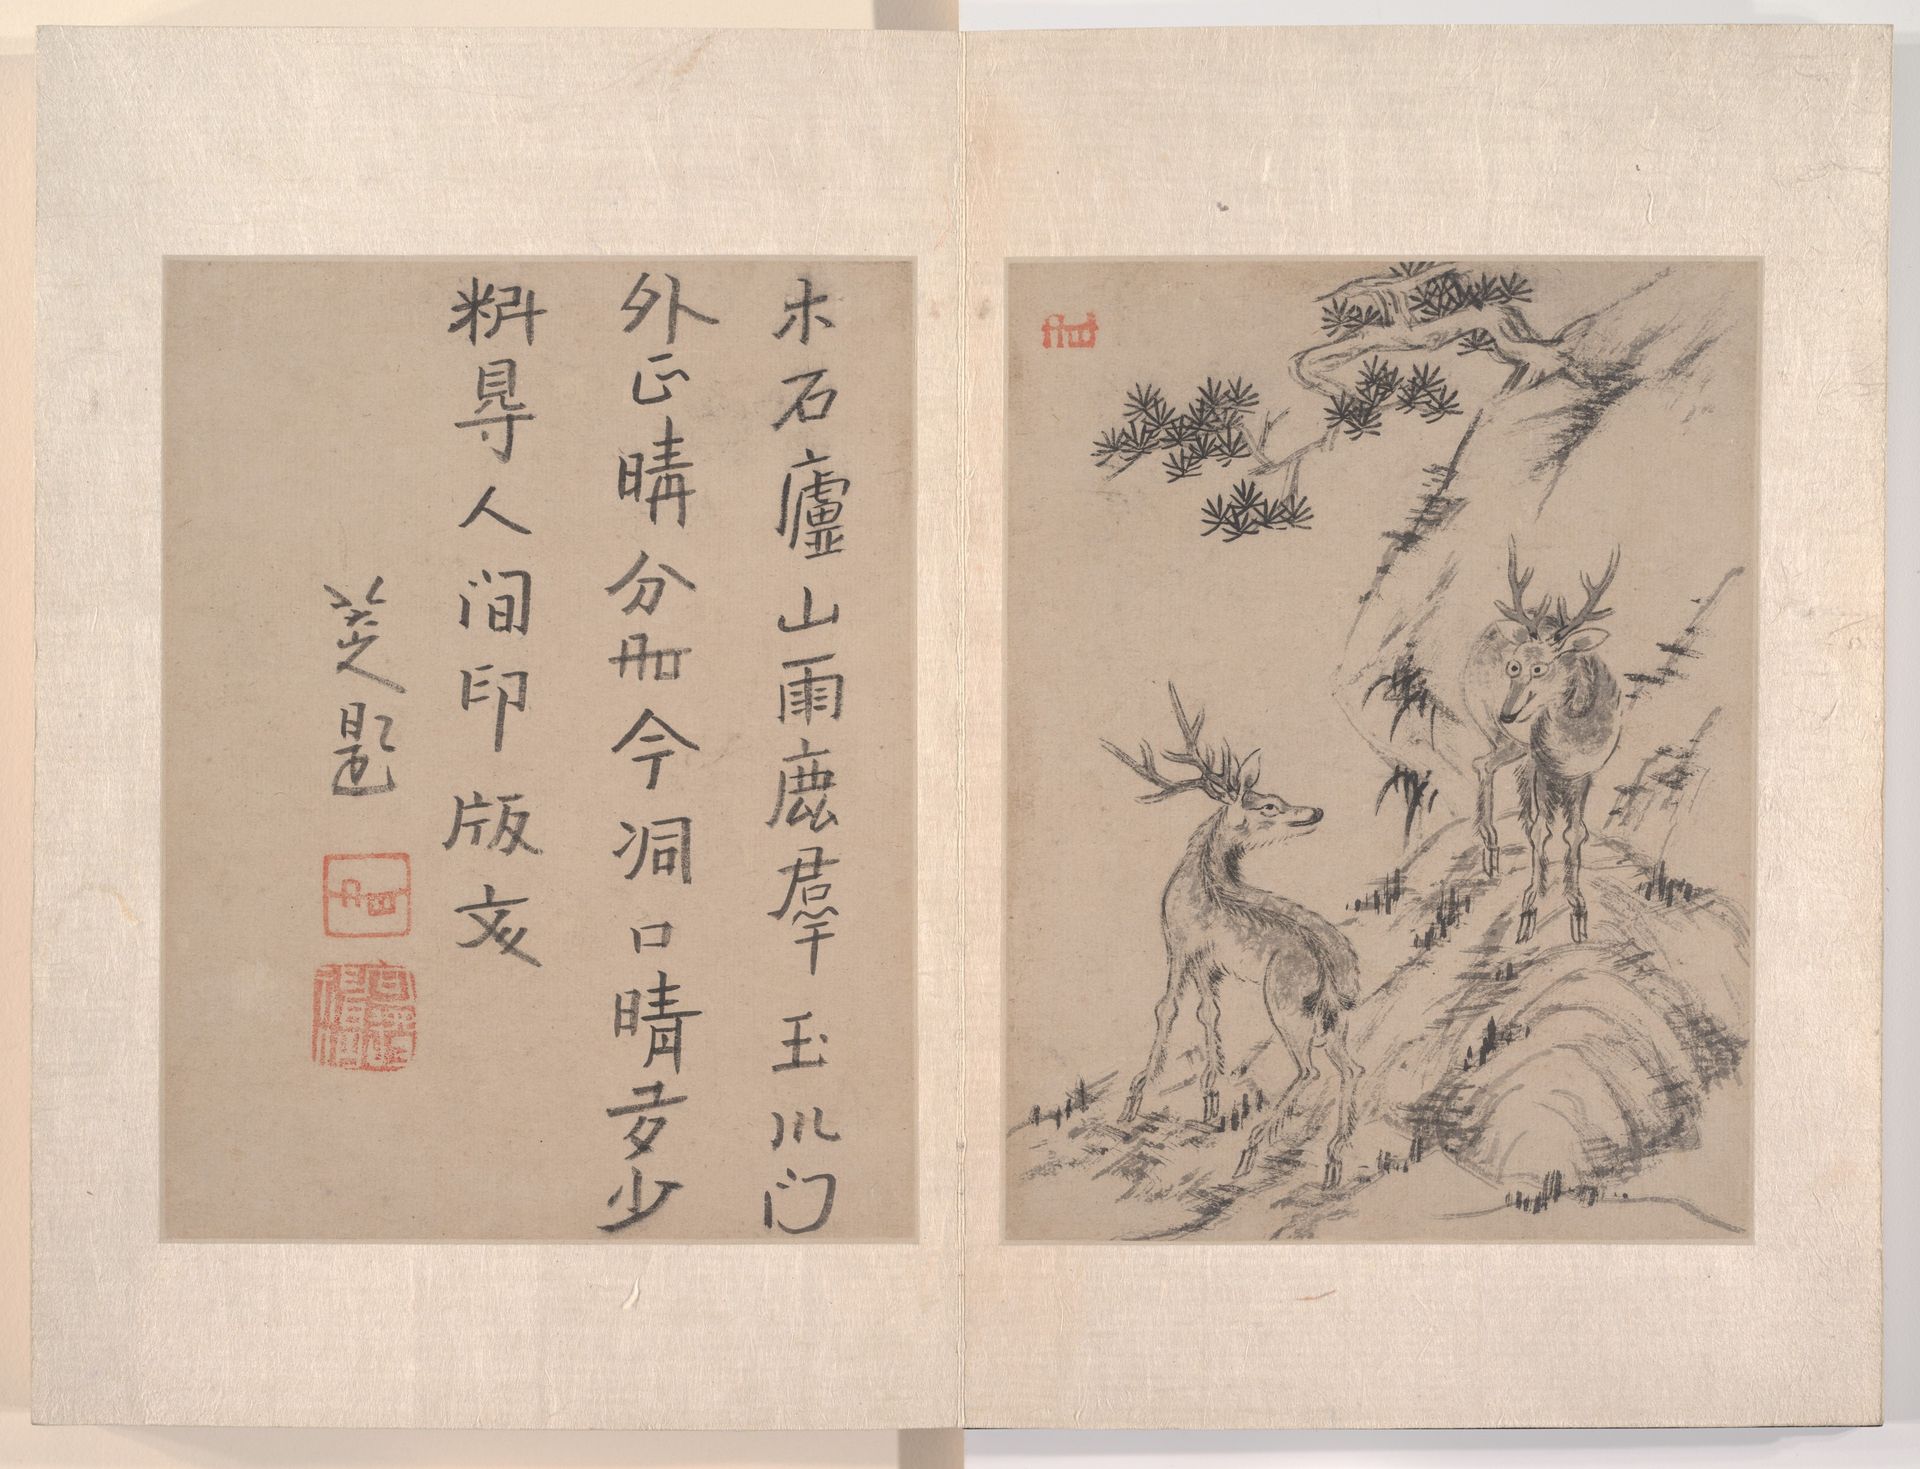 木石廬山雨鹿羣玉川门
外正分今洞口晴多少
料㝵人间印版
八大山人題